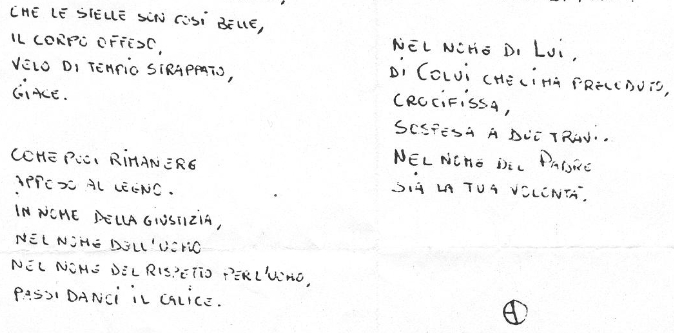 CHE LE STELLE SON COSÌ BELLE,
IL CORPO OFFESO,
VELO DI TEMPIO STRAPPATO,
GIACE.
COME PUOI RIMANERE
APPESO AL LEGNO.
IN NOME DELLA GIUSTIZIA,
NEL NOME DELL'UOMO
NEL NOME DEL RISPETTO PER L'UOMO,
PASSI DANCI IL CALICE.
NEL NOME DI LUI,
DI COLUI CHE CI HA PRECEDUTO,
CROCIFISSA,
SOSPESA A DUE TRAVI.
NEL NOME DEL PADRE
SIA LA TUA VOLONTÀ.